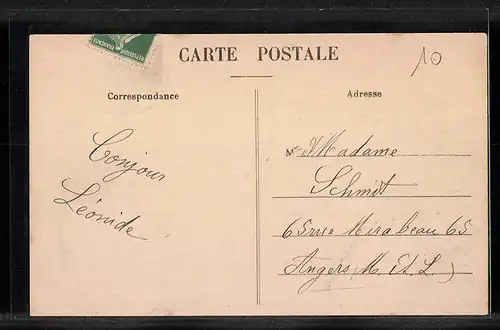 CARTE POSTALE
10
Correspondance
Adresse
Bonjour
Léonide
M Madame
Schmit
65 rue Mirabeau 65
Angers (M. Et. L.)